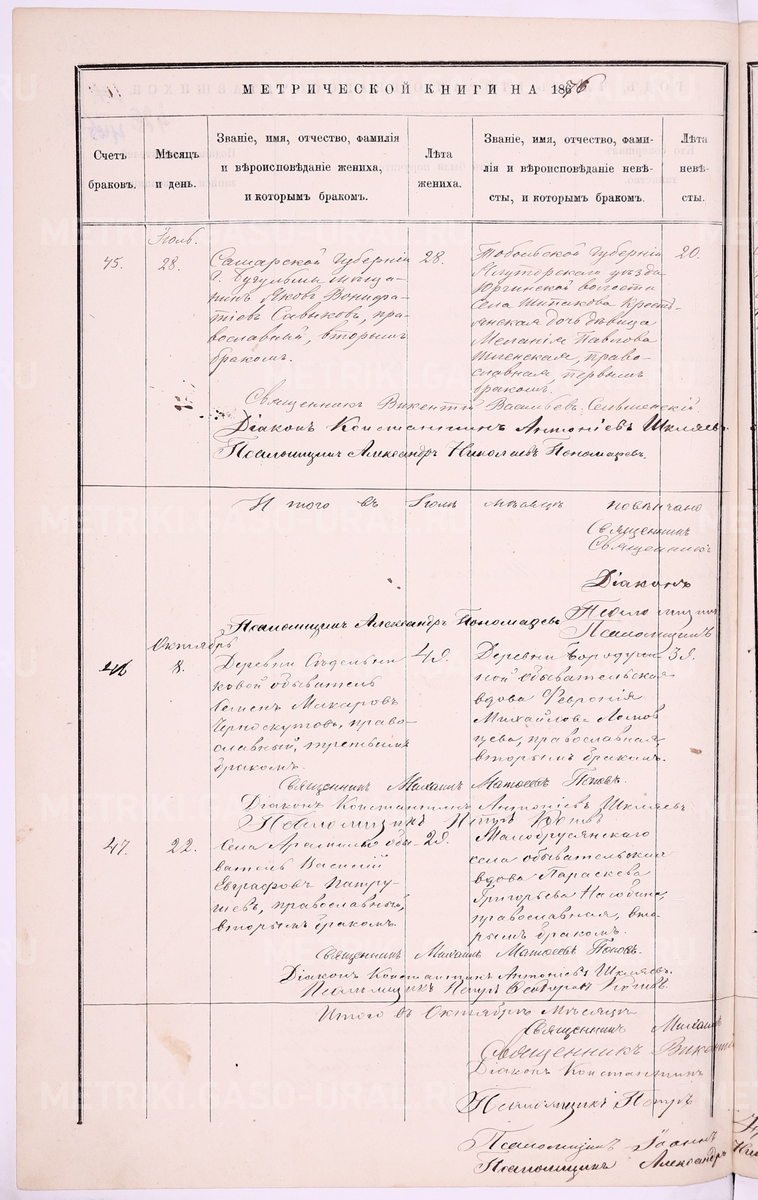 МЕТРИЧЕСКОЙ КНИГИ НА 1876
Счетъ браковъ.
Мѣсяцъ и день.
Званіе, имя, отчество, фамилія
и вѣроисповѣданіе жениха,
и которымъ бракомъ.
Лѣта жениха.
Званіе, имя, отчество, фами-
лія и вѣроисповѣданіе невѣ-
сты, и которымъ бракомъ.
Лѣта невѣ-
сты.
Іюль.
45.
28.
Самарской Губерніи
г. Бугульмы мѣща-
нинъ Яковъ
Савыковъ, пра-
вославный, вторымъ
бракомъ.
28.
Тобольской Губерніи
Ялуторскаго уѣзда
Юргинской волости
села Шипакова крестъ-
янская дочь дѣвица
Меланія Павлова
право-
славная, первымъ
бракомъ.
20.
Священникъ Викентій Васильевъ
Діаконъ Константинъ Антоніевъ Шкляевъ
Псаломщикъ Александръ Николаевъ Пономаревъ.
И того въ Іюлѣ мѣсяцѣ повѣнчано
Священникъ
Священникъ
Діаконъ
Псаломщикъ
Псаломщикъ Александръ Пономаревъ
Псаломщикъ
Октябрь
46
8.
Деревни Сѣдельни-
ковой обыватель
Макаровъ
Черноскутовъ, право-
славный, третьимъ
бракомъ.
49.
Деревни Бородули-
ной обывательская
вдова Февронія
Михайлова
православная,
вторымъ бракомъ.
39.
Священникъ Михаилъ Матѳеевъ Поповъ.
Діаконъ Константинъ Антоніевъ Шкляевъ
Псаломщикъ Петръ
47.
22.
Села Арамиль обы-
ватель Василій
Евграфовъ Патру-
шевъ, православный,
вторымъ бракомъ.
29.
Малобрусянскаго
села обывательская
вдова Параскева
Григорьева
православная, вто-
рымъ бракомъ.
Священникъ Михаилъ Матѳеевъ Поповъ.
Діаконъ Константинъ Антоніевъ Шкляевъ.
Псаломщикъ Петръ Ѳеодоровъ
Итого въ Октябрѣ мѣсяцѣ
Священникъ Михаилъ
Священникъ Викентій
Діаконъ Константинъ
Псаломщикъ Петръ
Псаломщикъ Іоаннъ
Псаломщикъ Александръ
METRIKI.GASU-URAL.RU